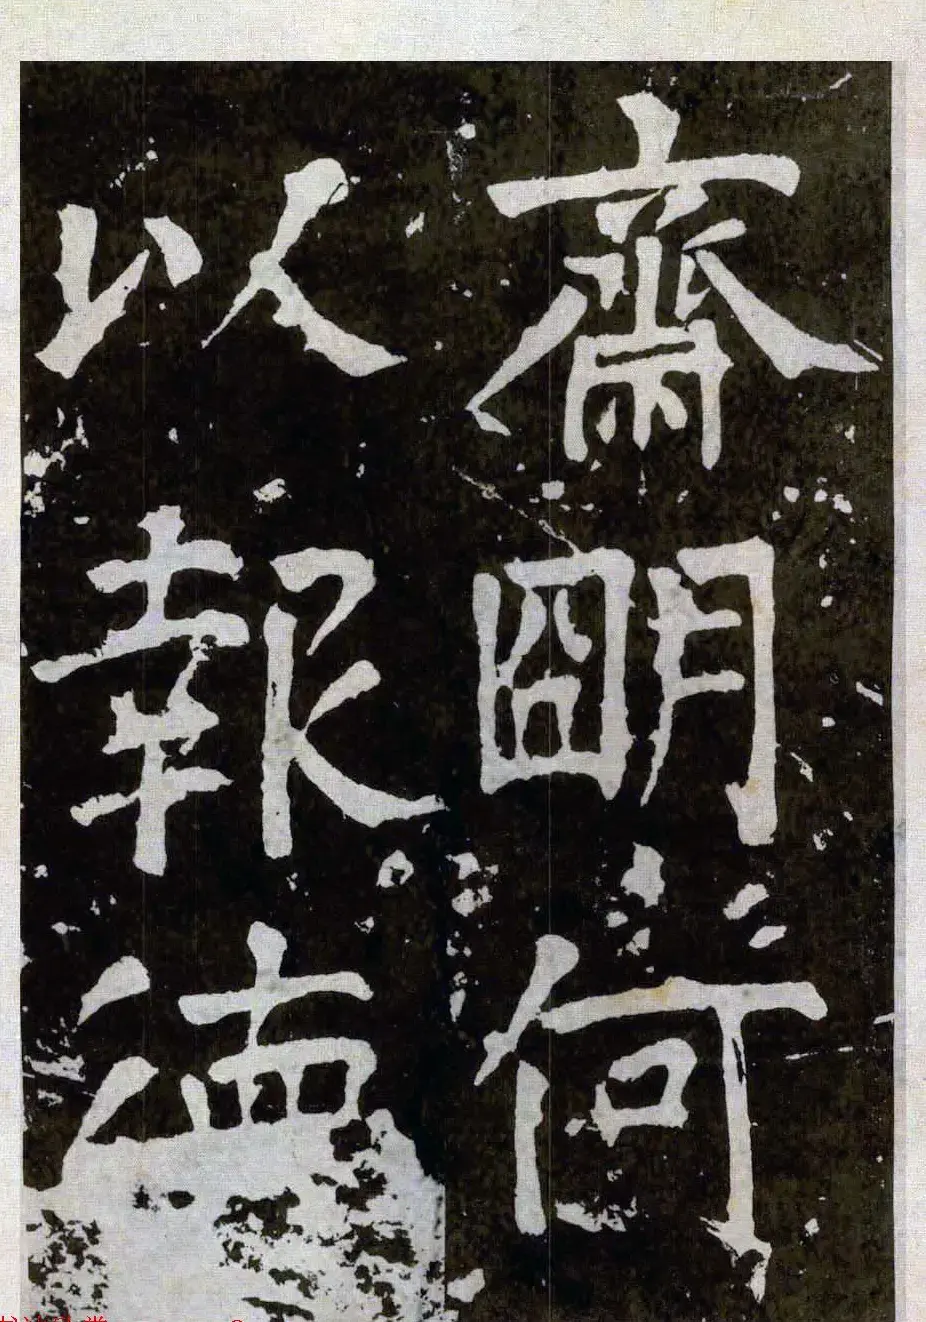 齋明何
以報德